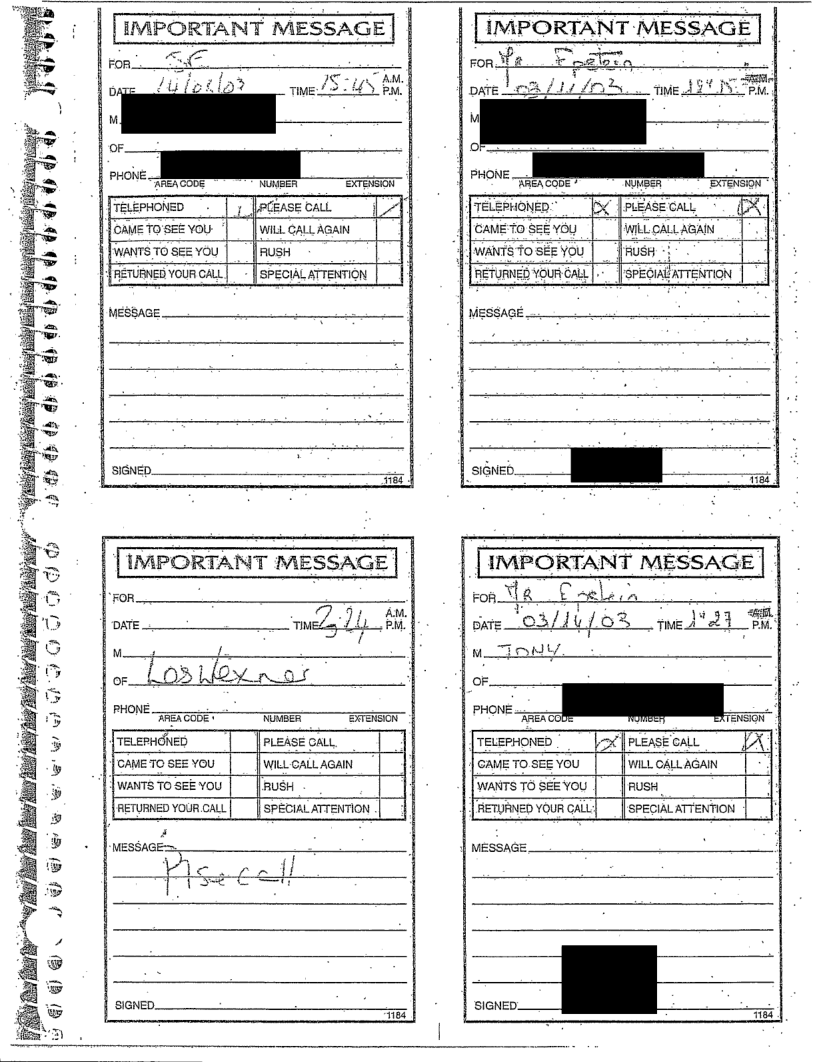 IMPORTANT MESSAGE
FOR
DATE TIME 15:45 A.M. P.M.
M
OF
PHONE
AREA CODE NUMBER EXTENSION
TELEPHONED PLEASE CALL
CAME TO SEE YOU WILL CALL AGAIN
WANTS TO SEE YOU RUSH
RETURNED YOUR CALL SPECIAL ATTENTION
MESSAGE
SIGNED
1184
IMPORTANT MESSAGE
FOR Mr Epstein
DATE 03/11/03 TIME P.M.
M
OF
PHONE
AREA CODE NUMBER EXTENSION
TELEPHONED X PLEASE CALL X
CAME TO SEE YOU WILL CALL AGAIN
WANTS TO SEE YOU RUSH
RETURNED YOUR CALL SPECIAL ATTENTION
MESSAGE
SIGNED
1184
IMPORTANT MESSAGE
FOR
DATE TIME A.M. P.M.
M
OF Les Wexner
PHONE
AREA CODE NUMBER EXTENSION
TELEPHONED PLEASE CALL
CAME TO SEE YOU WILL CALL AGAIN
WANTS TO SEE YOU RUSH
RETURNED YOUR CALL SPECIAL ATTENTION
MESSAGE
Plse call
SIGNED
1184
IMPORTANT MESSAGE
FOR Mr Epstein
DATE 03/14/03 TIME 1:27 P.M.
M TONY
OF
PHONE
AREA CODE NUMBER EXTENSION
TELEPHONED X PLEASE CALL X
CAME TO SEE YOU WILL CALL AGAIN
WANTS TO SEE YOU RUSH
RETURNED YOUR CALL SPECIAL ATTENTION
MESSAGE
SIGNED
1184